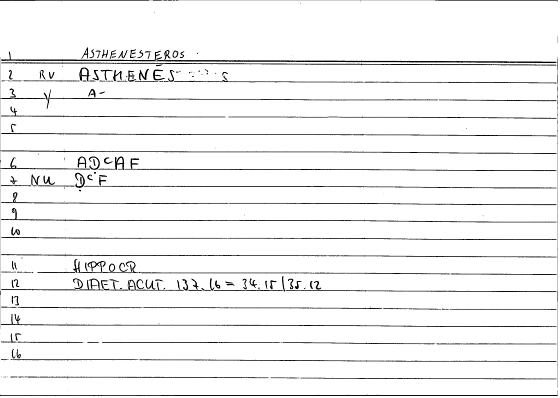 1 ASTHENESTEROS
2 RV ASTHENĒS S
3 Y A-
4
5
6 ADCAF
7 NU DCF
8
9
10
11 HIPPOCR
12 DIAET. ACUT. 137.16 = 34.15 / 35.12
13
14
15
16